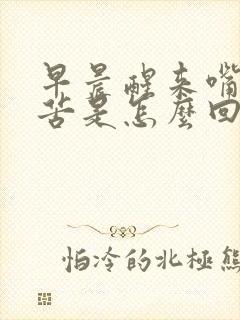 早晨醒来嘴
苦是怎麼回
怕冷的北極熊